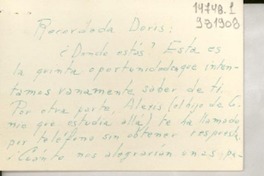 14748.1
981908
Recordada Doris:
¿Donde estás? Esta es
la quinta oportunidad que inten-
tamos vanamente saber de ti.
Por otra parte, Alexis (el hijo de
que estudia allá) te ha llamado
por teléfono sin obtener respuesta
¡Cuánto nos alegrarían unas